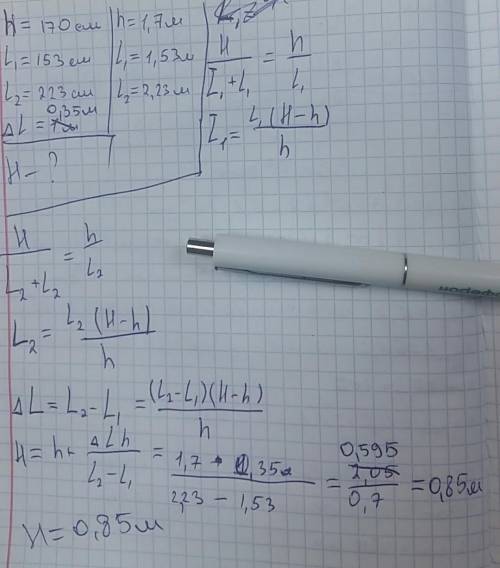 h = 170 см
L₁ = 153 см
L₂ = 223 см
0,35м
ΔL =
H - ?
h = 1,7м
L₁ = 1,53м
L₂ = 2,23м
H / (L₁ + L₁) = h / L₁
L₁ = L₁(H-h) / h
H / (L₂ + L₂) = h / L₂
L₂ = L₂(H-h) / h
ΔL = L₂ - L₁ = (L₂-L₁)(H-h) / h
H = h + ΔLh / (L₂-L₁) = 1,7 · 0,35 / (2,23 - 1,53) = 0,595 / 0,7 = 0,85м
H = 0,85м